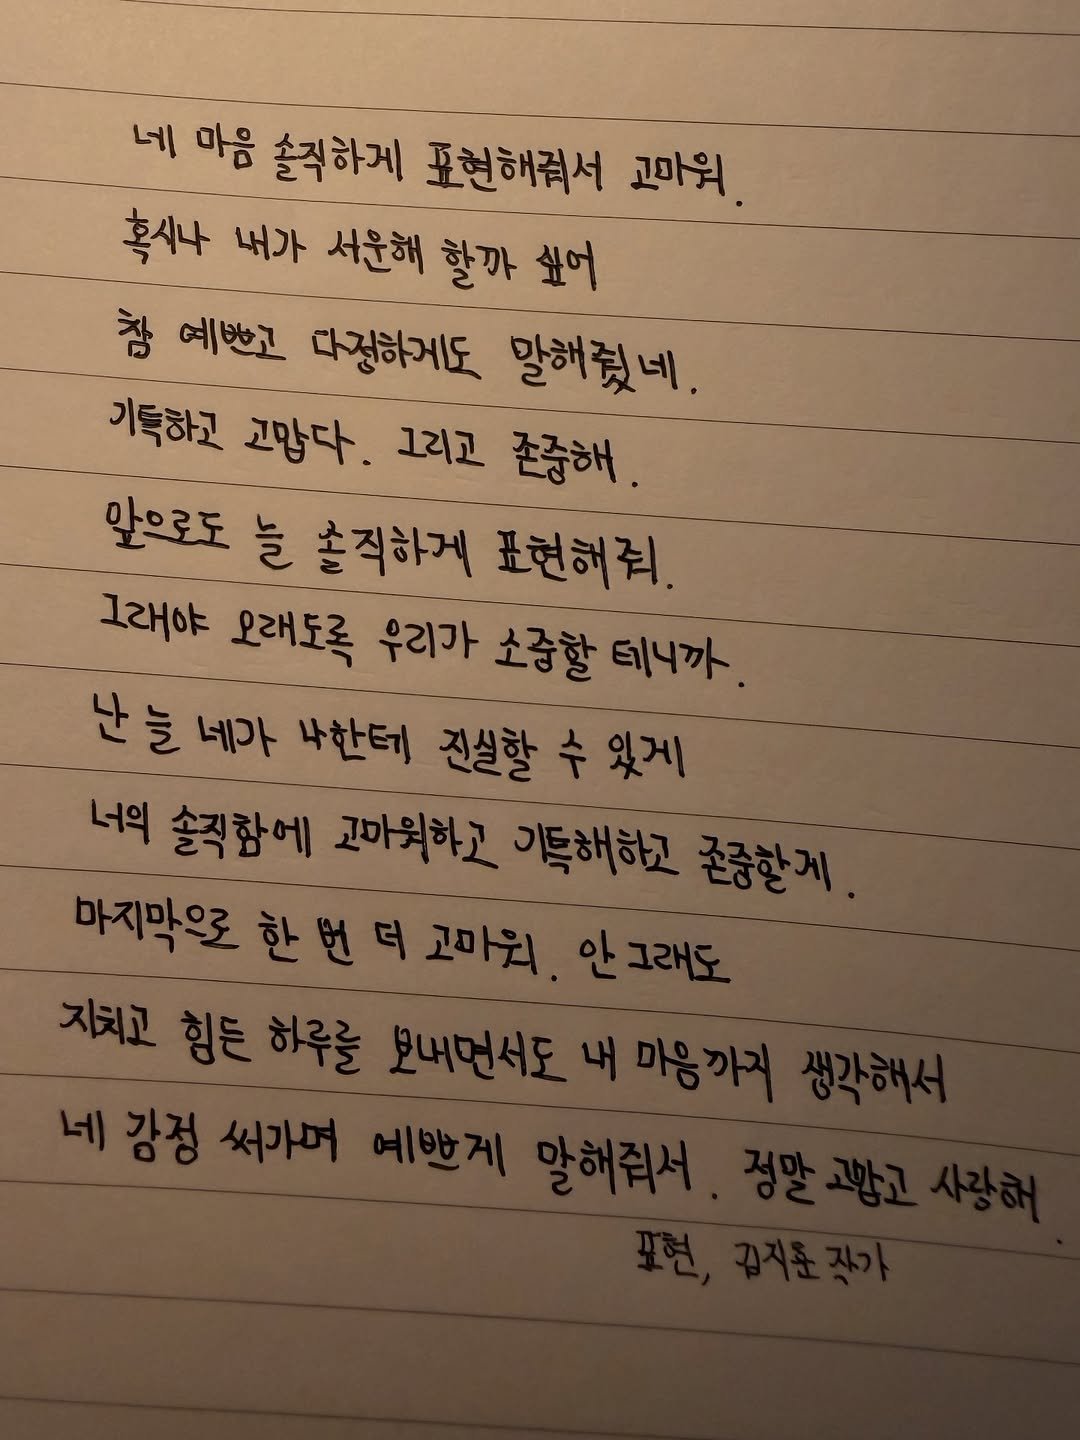 네 마음 솔직하게 표현해줘서 고마워.
혹시나 내가 서운해 할까 싶어
참 예쁘고 다정하게도 말해줬네.
기특하고 고맙다. 그리고 존중해.
앞으로도 늘 솔직하게 표현해줘.
그래야 오래도록 우리가 소중할 테니까.
난 늘 네가 나한테 진실할 수 있게
너의 솔직함에 고마워하고 기특해하고 존중할게.
마지막으로 한 번 더 고마워. 안 그래도
지치고 힘든 하루를 보내면서도 내 마음까지 생각해서
네 감정 써가며 예쁘게 말해줘서. 정말 고맙고 사랑해.
표현, 김지훈 작가